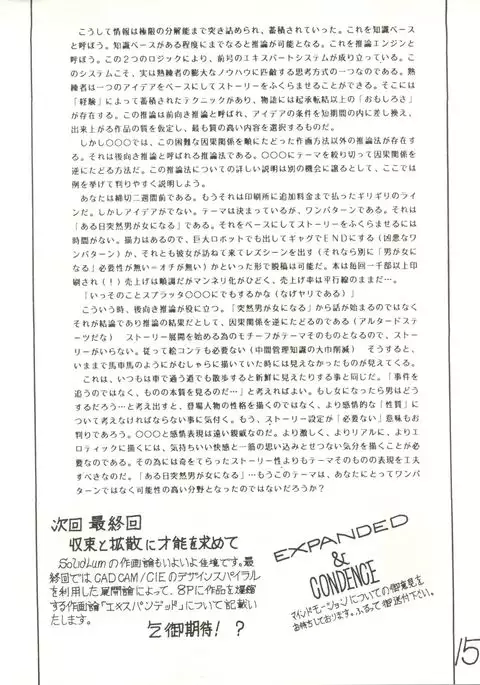 こうして情報は極限の分解能まで突き詰められ、蓄積されていった。これを知識ベース
と呼ぼう。知識ベースがある程度にまでなると推論が可能となる。これを推論エンジンと
呼ぼう。この２つのロジックにより、前号のエキスパートシステムが成り立っている。こ
のシステムこそ、実は熟練者の膨大なノウハウに匹敵する思考方式の一つなのである。熟
練者は一つのアイデアをベースにしてストーリーをふくらませることができる。そこには
「経験」によって蓄積されたテクニックがあり、物語には起承転結以上の「おもしろさ」
が存在する。この推論は前向き推論と呼ばれ、アイデアの条件を短期間の内に差し換え、
出来上がる作品の質を仮定し、最も質の高い内容を選択するものだ。
しかし〇〇〇では、この困難な因果関係を順にたどった作画方法以外の推論法が存在す
る。それは後向き推論と呼ばれる推論法である。〇〇〇にテーマを絞り切って因果関係を
逆にたどる方法だ。この推論法についての詳しい説明は別の機会に譲るとして、ここでは
例を挙げて判りやすく説明しよう。
あなたは締切二週間前である。もうそれは印刷所に追加料金まで払ったギリギリのライ
ンだ。しかしアイデアがでない。テーマは決まっているが、ワンパターンである。それは
「ある日突然男が女になる」である。それをベースにしてストーリーをふくらませるには
時間がない。描力はあるので、巨大ロボットでも出してギャグでＥＮＤにする（凶悪なワ
ンパターン）か、それとも彼女が訪ねて来てレズシーンを出す（それなら別に「男が女に
なる」必要性が無い＝オチが無い）かといった形で脱稿は可能だ。本は毎回一千部以上印
刷され（！）売上げは順調だがマンネリ化がひどく、売上げ率は平行線のままだ…。
「いっそのことスプラッタ〇〇〇にでもするかな（なげやりである）」
こういう時、後向き推論が役に立つ。「突然男が女になる」から話が始まるのではなく
それが結論であり推論の結果だとして、因果関係を逆にたどるのである（アルタードステ
ーツだな）　ストーリー展開を始める為のモチーフがテーマそのものとなるので、ストー
リーがいらない。従って絵コンテも必要ない（中間管理知識の大巾削減）　そうすると、
いままで馬車馬のようにがむしゃらに描いていた時には見えなかったものが見えてくる。
これは、いつもは車で通う道でも散歩すると新鮮に見えたりする事と同じだ。「事件を
追うのではなく、ものの本質を見るのだ…」と考えればよい。もし女になったら男はどう
するだろう…と考え出すと、登場人物の性格を描くのではなく、より感情的な「性質」に
ついて考えなければならない事に気付く。もう、ストーリー設定が「必要ない」意味もお
判りであろう。〇〇〇と感情表現は遠い親戚なのだ。より激しく、よりリアルに、よりエ
ロティックに描くには、気持ちいい快感と一筋の思い込みとせつない気分を描くことが必
要なのである。その為には奇をてらったストーリー性よりもテーマそのものの表現を工夫
すべきなのだ。「ある日突然男が女になる」…もうこのテーマは、あなたにとってワンパ
ターンではなく可能性の高い分野となったのではないだろうか？
次回 最終回
収束と拡散に才能を求めて
Solidlumの作画論もいよいよ佳境です。最
終回ではCAD CAM/CIEのデザインスパイラル
を利用した展開論によって、8Pに作品を爆縮
する作画論「エキスパンデッド」について記載い
たします。
乞御期待！？
EXPANDED
&
CONDENCE
マインドモーションについての御意見を
お待ちしております。ふるって御送付下さい。
15